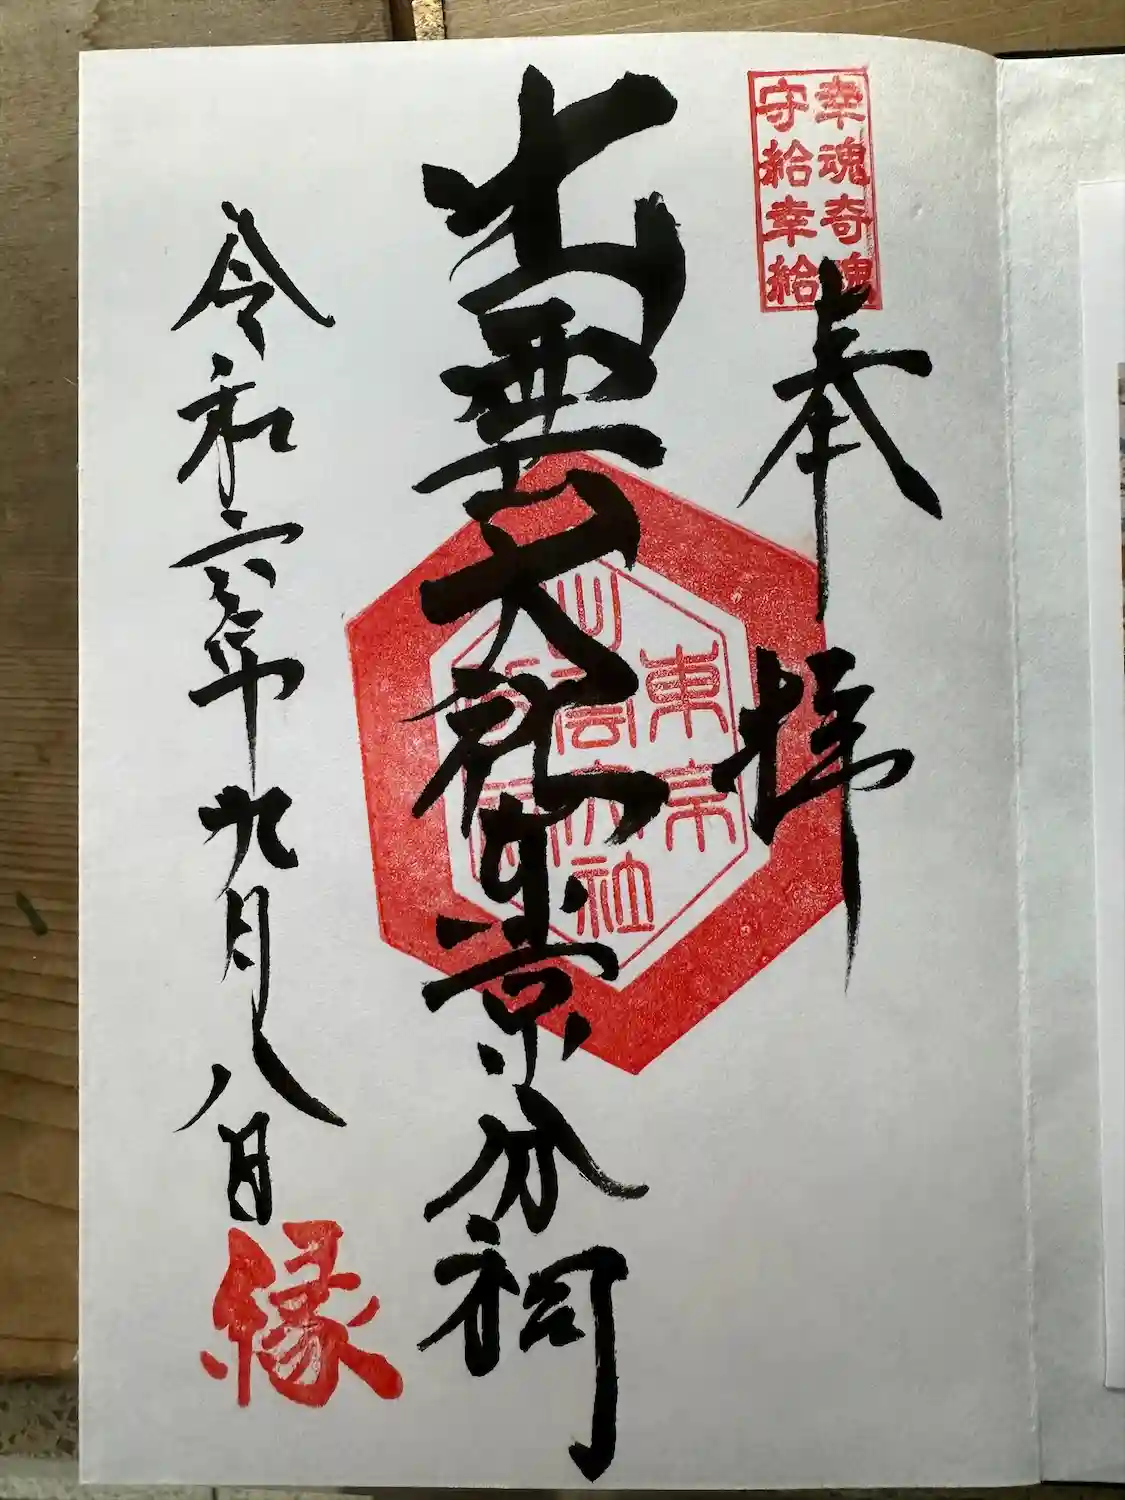 幸魂奇魂
守給幸給
奉拝
出雲大社東京分祠
東京
出雲大社
分祠
令和六年九月八日
縁